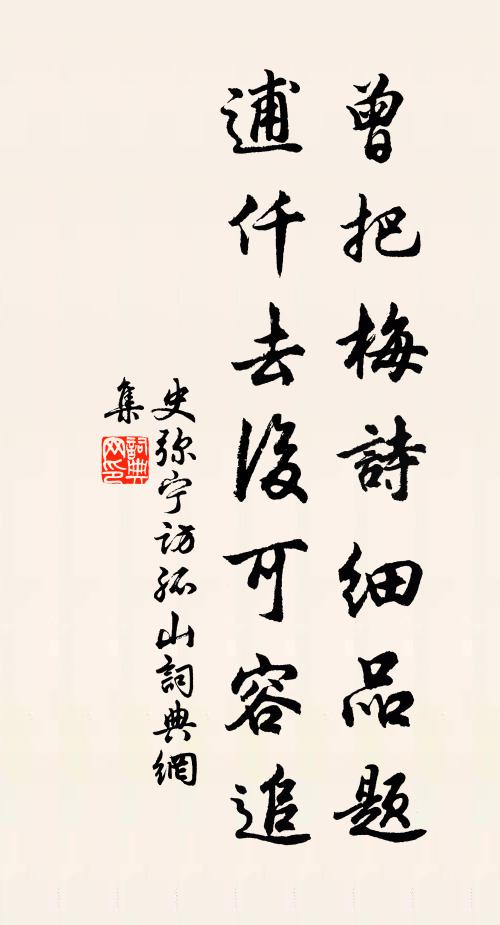 曾把梅詩細品题
逋仟去後可容追
史弥宁訪孤山詞典網
集
詞典
网印